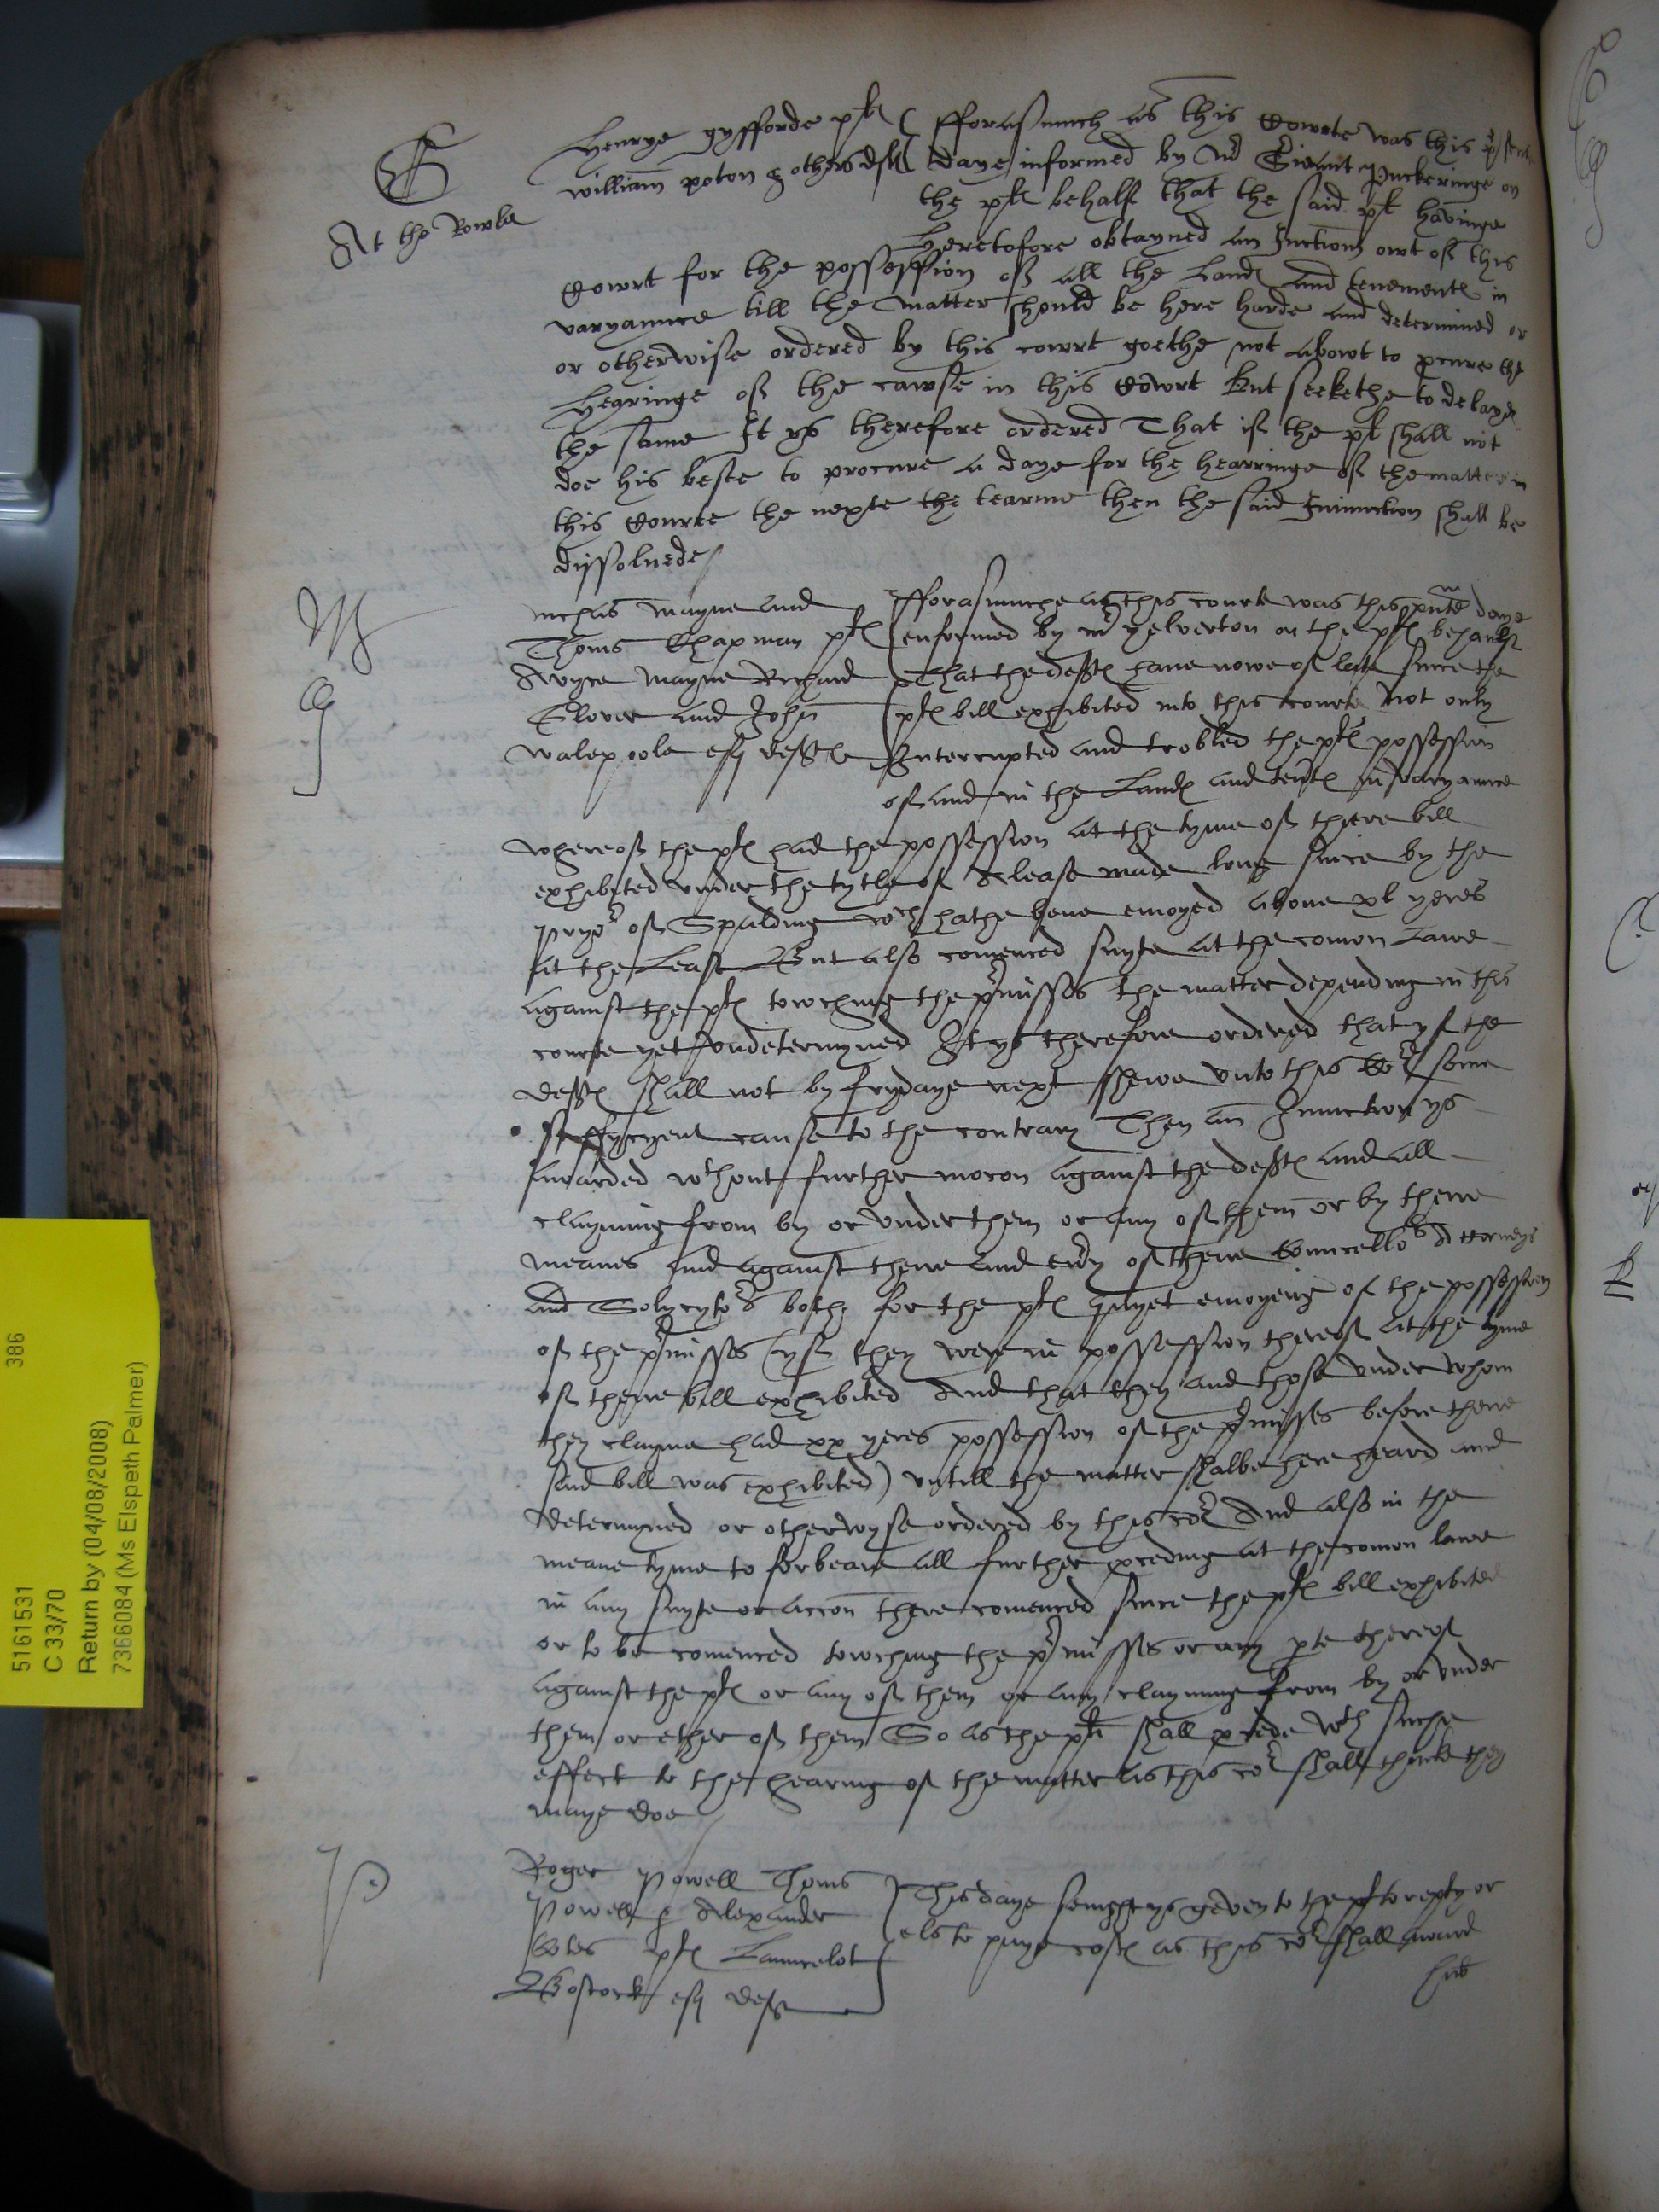 G
At the Rowles
Henrye gyfforde plt
william poton & others deftes
fforasmuch as this Cowrte was this present
daye informed by Mr Serieant Puckeringe on
the plt behalf that the said plt havinge
Heretofore obtayned an Iniunction owt of this
Cowrt for the possession of all the Landes and tenementes in
varyaunce till the matter should be here harde and determined or
or otherwise ordered by this cowrt goethe not abowt to procure the
Hearinge of the cawse in this Cowrt But seekethe to delaye
the same It ys therefore ordered That if the plt shall not
doe his beste to procure a daye for the hearringe of the matter in
this Courte the nexte the tearme then the said Iniunction shall be
dissoluede
M
G
nichas mayne and
Thoms Chapman pltes
Avyce mayne Richard
Glover and John
walepoole esq deftes
fforasmuche as this courte was this pnte daye
enformed by mr yelverton on the pltes behaulf
That the deftes haue nowe of late since the
pltes bill exhibited into this courte Not only
Interrupted and trobled the pltes possession
of and in the Landes and tentes in varyaunce
whereof the pltes had the possession at the tyme of theire bill
exhibited vnder the tytle of A lease made long since by the
Pryor of Spalding wch hathe bene enioyed aboue xl yeres
at the Least But also comenced suyte at the comon Lawe
against the pltes towching the pmisses the matter depending in this
courte yet vndetermyned It ys therefore ordered that yf the
deftes shall not by frydaye next shewe vnto this Cort some
suffycyent cause to the contrary Then an Iniunction ys
awarded wthout further mocon against the deftes and all
clayming from by or vnder them or any of them or by there
meanes and against there and euy of there Councellors Attorneys
and Solycytors both for the pltes quyet enioyeing of the possession
of the pmisses (yf they were in possession thereof at the tyme
of there bill exhibited And that they and those vnder whom
they clayme had xx yeres possession of the pmisses before there
said bill was exhibited) vntill the matter shalbe here heard and
determyned or otherwyse ordered by this cort And also in the
meane tyme to forbeare all further pceding at the comon lawe
in any suyte or accon there comenced since the pltes bill exhibited
or to be comenced towching the pmisses or any pte thereof
against the pltes or any of them or any clayming from by or vnder
them or ether of them So as the plt shall pcede wth suche
effect to the hearing of the matter as this cort shall thincke they
maye doe
P
Roger Powell Thoms
Powell & Alexander
Cotes pltes Launcelot
Bostock esq deft
This daye senight ys geven to the plt to reply or
els to paye costes as this cort shall award
5161531 386
C 33/70
Return by (04/08/2008)
7366084 (Ms Elspeth Palmer)